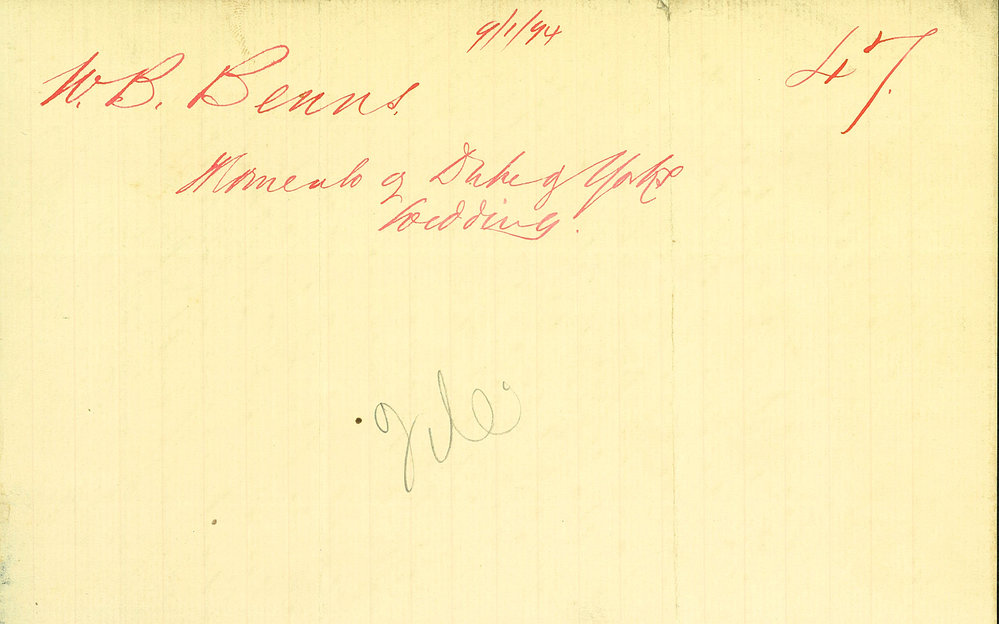 9/1/94
W. B. Benns. 47.
Momento of Duke of Yorks
Wedding.
File